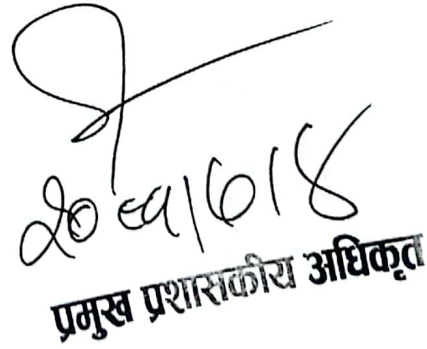 २०८१/७/४
प्रमुख प्रशासकीय अधिकृत